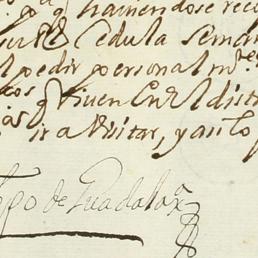 haviendose reco
su Rl Cedula se man
pedir personalmte
q viven en el dist
ir a visitar, y asi lo
de Guadalaxa